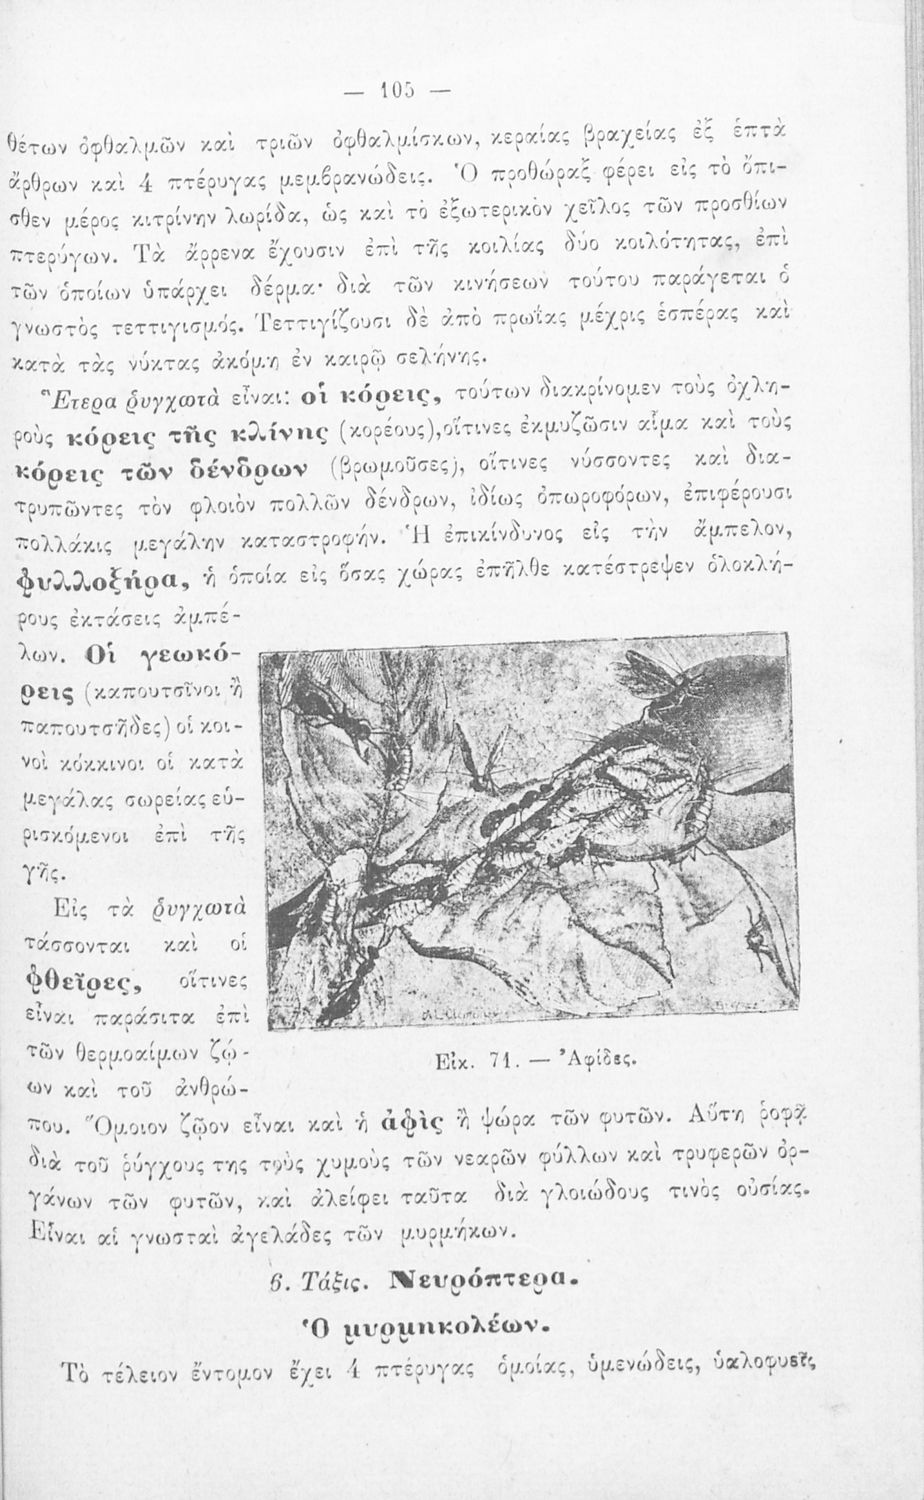 — 105 —
θέτων ὀφθαλμῶν καὶ τριῶν ὀφθαλμίσκων, κεραίας βραχείας ἐξ ἑπτὰ
ἄρθρων καὶ 4 πτέρυγας μεμβρανώδεις. Ὁ προθώραξ φέρει εἰς τὸ ὄπι-
σθεν μέρος κιτρίνην λωρίδα, ὡς καὶ τὸ ἐξωτερικὸν χεῖλος τῶν προσθίων
πτερύγων. Τὰ ἄρρενα ἔχουσιν ἐπὶ τῆς κοιλίας δύο κοιλότητας, ἐπὶ
τῶν ὁποίων ὑπάρχει δέρμα· διὰ τῶν κινήσεων τούτου παράγεται ὁ
γνωστὸς τεττιγισμός. Τεττιγίζουσι δὲ ἀπὸ πρωΐας μέχρις ἑσπέρας καὶ
κατὰ τὰς νύκτας ἀκόμη ἐν καιρῷ σελήνης.
Ἕτερα ῥυγχωτὰ εἶναι: οἱ κόρεις, τούτων διακρίνομεν τοὺς ὀχλη-
ροὺς κόρεις τῆς κλίνης (κορέους),οἵτινες ἐκμυζῶσιν αἷμα καὶ τοὺς
κόρεις τῶν δένδρων (βρωμοῦσες), οἵτινες νύσσοντες καὶ δια-
τρυπῶντες τὸν φλοιὸν πολλῶν δένδρων, ἰδίως ὀπωροφόρων, ἐπιφέρουσι
πολλάκις μεγάλην καταστροφήν. Ἡ ἐπικίνδυνος εἰς τὴν ἄμπελον,
φυλλοξήρα, ἡ ὁποία εἰς ὅσας χώρας ἐπῆλθε κατέστρεψεν ὁλοκλή-
ρους ἐκτάσεις ἀμπέ-
λων. Οἱ γεωκό-
ρεις (καπουτσῖνοι ἢ
παπουτσῆδες) οἱ κοι-
νοὶ κόκκινοι οἱ κατὰ
μεγάλας σωρείας εὑ-
ρισκόμενοι ἐπὶ τῆς
γῆς.
Εἰς τὰ ῥυγχωτὰ
τάσσονται καὶ οἱ
φθεῖρες, οἵτινες
εἶναι παράσιτα ἐπὶ
τῶν θερμοαίμων ζώ-
ων καὶ τοῦ ἀνθρώ-
Εἰκ. 71. — Ἀφίδες.
που. Ὅμοιον ζῷον εἶναι καὶ ἡ ἀφὶς ἢ ψώρα τῶν φυτῶν. Αὕτη ῥοφᾷ
διὰ τοῦ ῥύγχους της τοὺς χυμοὺς τῶν νεαρῶν φύλλων καὶ τρυφερῶν ὀρ-
γάνων τῶν φυτῶν, καὶ ἀλείφει ταῦτα διὰ γλοιώδους τινὸς οὐσίας.
Εἶναι αἱ γνωσταὶ ἀγελάδες τῶν μυρμήκων.
6. Τάξις. Νευρόπτερα.
Ὁ μυρμηκολέων.
Τὸ τέλειον ἔντομον ἔχει 4 πτέρυγας ὁμοίας, ὑμενώδεις, ὑαλοφυεῖς